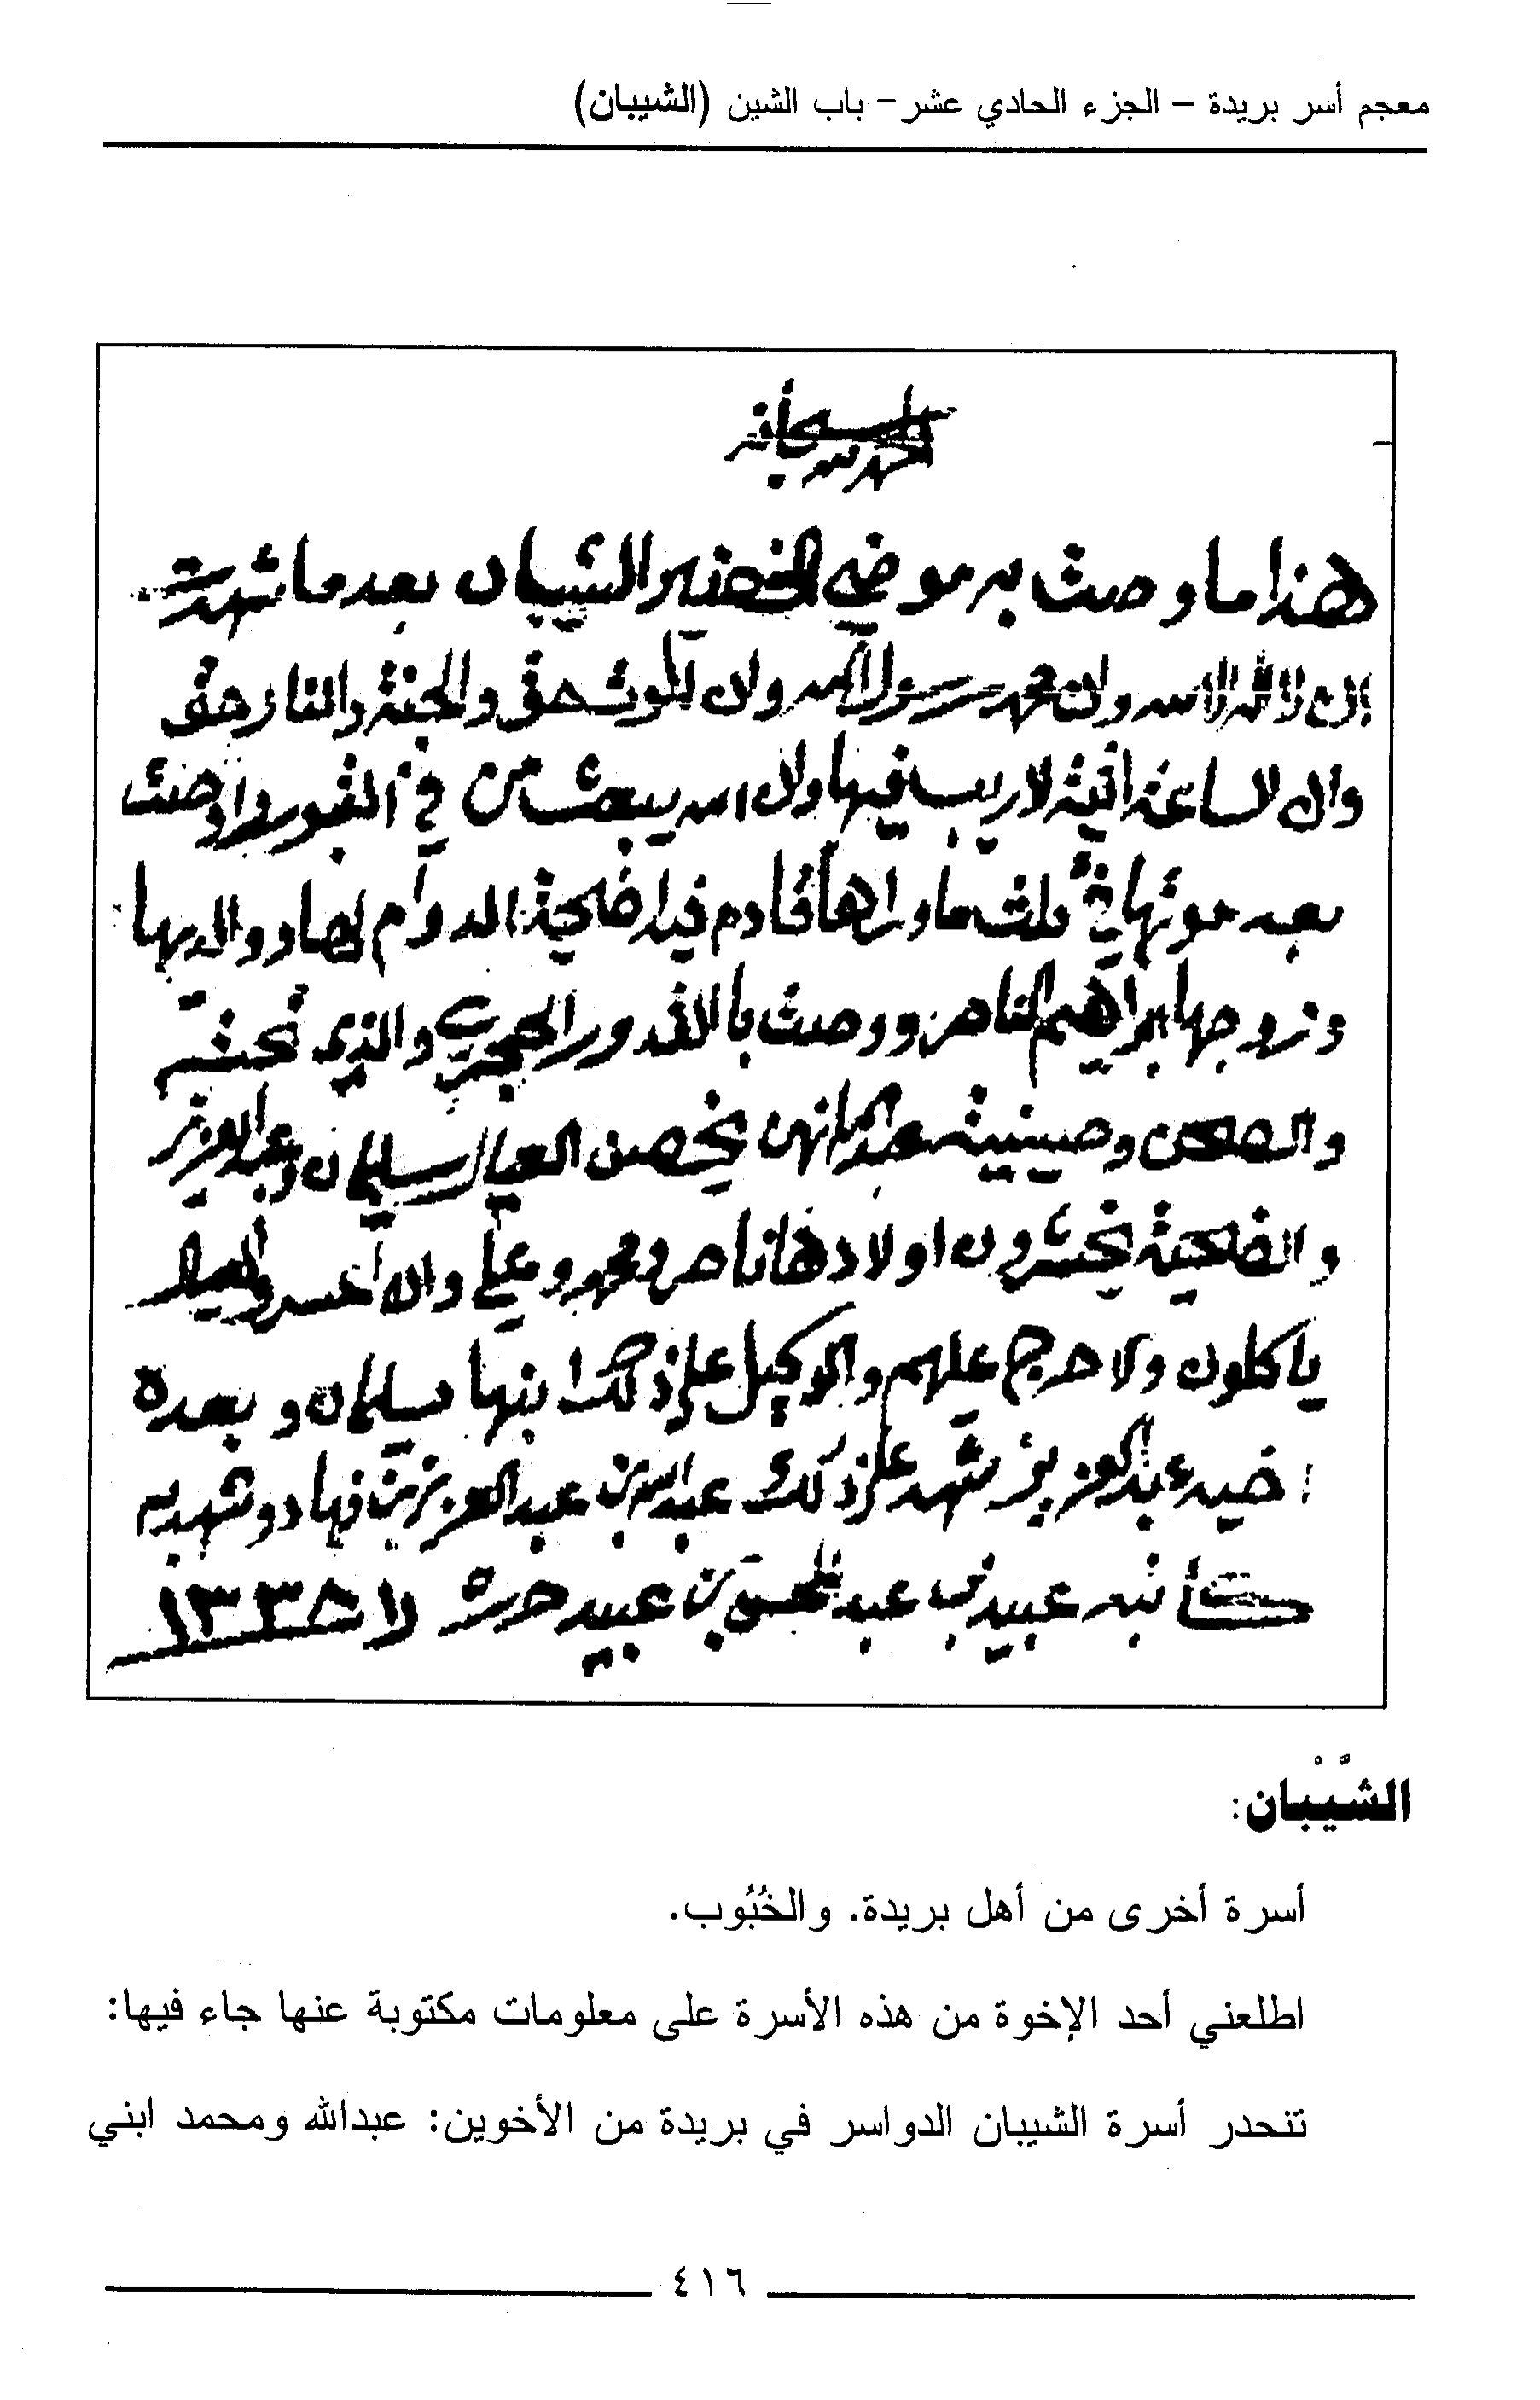 معجم أسر بريدة – الجزء الحادي عشر – باب الشين (الشيبان)
الحمد لله سبحانه
هذا ما وصت به موضي الخضير الشيبان بعد ما شهدت
ان لا اله الا الله وان محمد رسول الله وان الموت حق والجنة والنار حق
وان الساعة اتية لا ريب فيها وان الله يبعث من في القبور واوصت
بعد موتها في ثلث ما وراها قادم فيه اضحية الدوام لها ووالديها
وزوجها ابراهيم الناصر ووصت بالقدور الحجري والذي
والصحن وصينية يخصن العيال سليمان وعبدالعزيز
والضحية اولادها ناصر ومحمد وعلي وان
ياكلون ولا حرج عليهم والوكيل على ذلك ابنها سليمان وبعده
اخيه عبدالعزيز شهد على ذلك عبدالله بن عبدالعزيز بن فهاد وشهد به
كاتبه عبيد بن عبدالمحسن بن عبيد حرر ١٣٣٨
الشَّيْبان:
أسرة أخرى من أهل بريدة. والخُبُوب.
اطلعني أحد الإخوة من هذه الأسرة على معلومات مكتوبة عنها جاء فيها:
تنحدر أسرة الشيبان الدواسر في بريدة من الأخوين: عبدالله ومحمد ابني
٤١٦